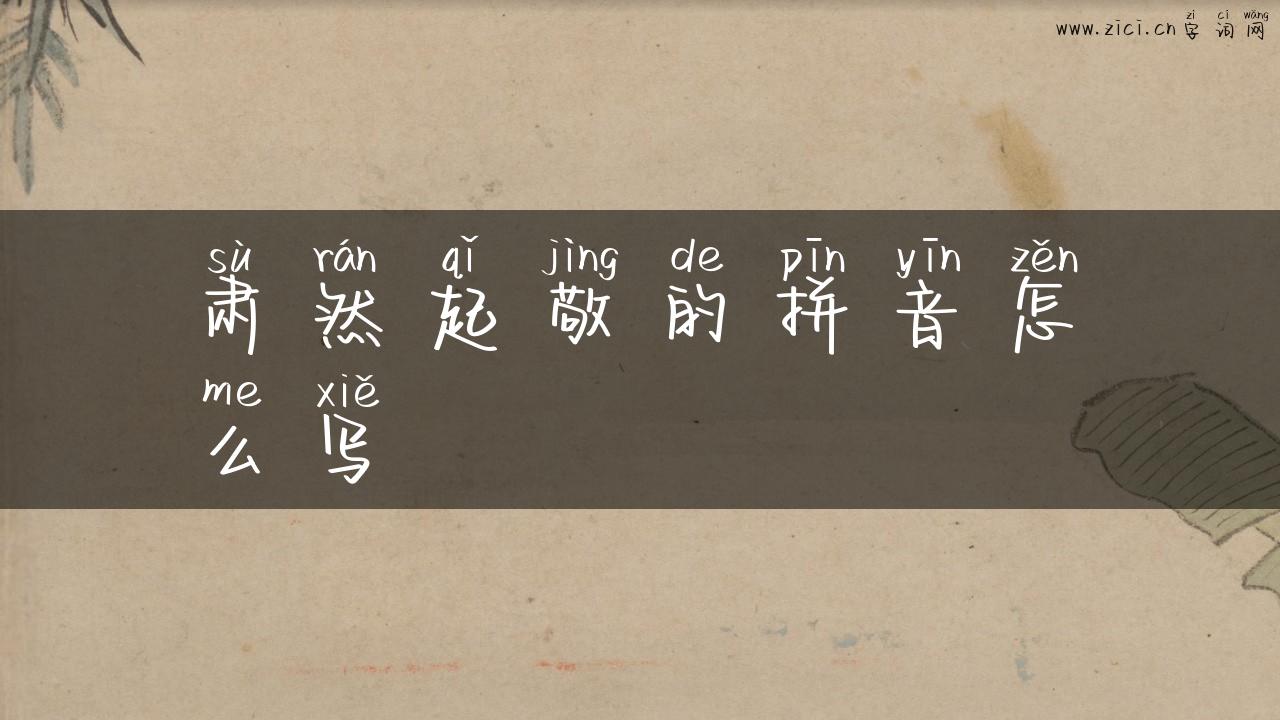 zì cí wǎng
www.zici.cn 字 词 网
sù rán qǐ jìng de pīn yīn zěn
肃 然 起 敬 的 拼 音 怎
me xiě
么 写